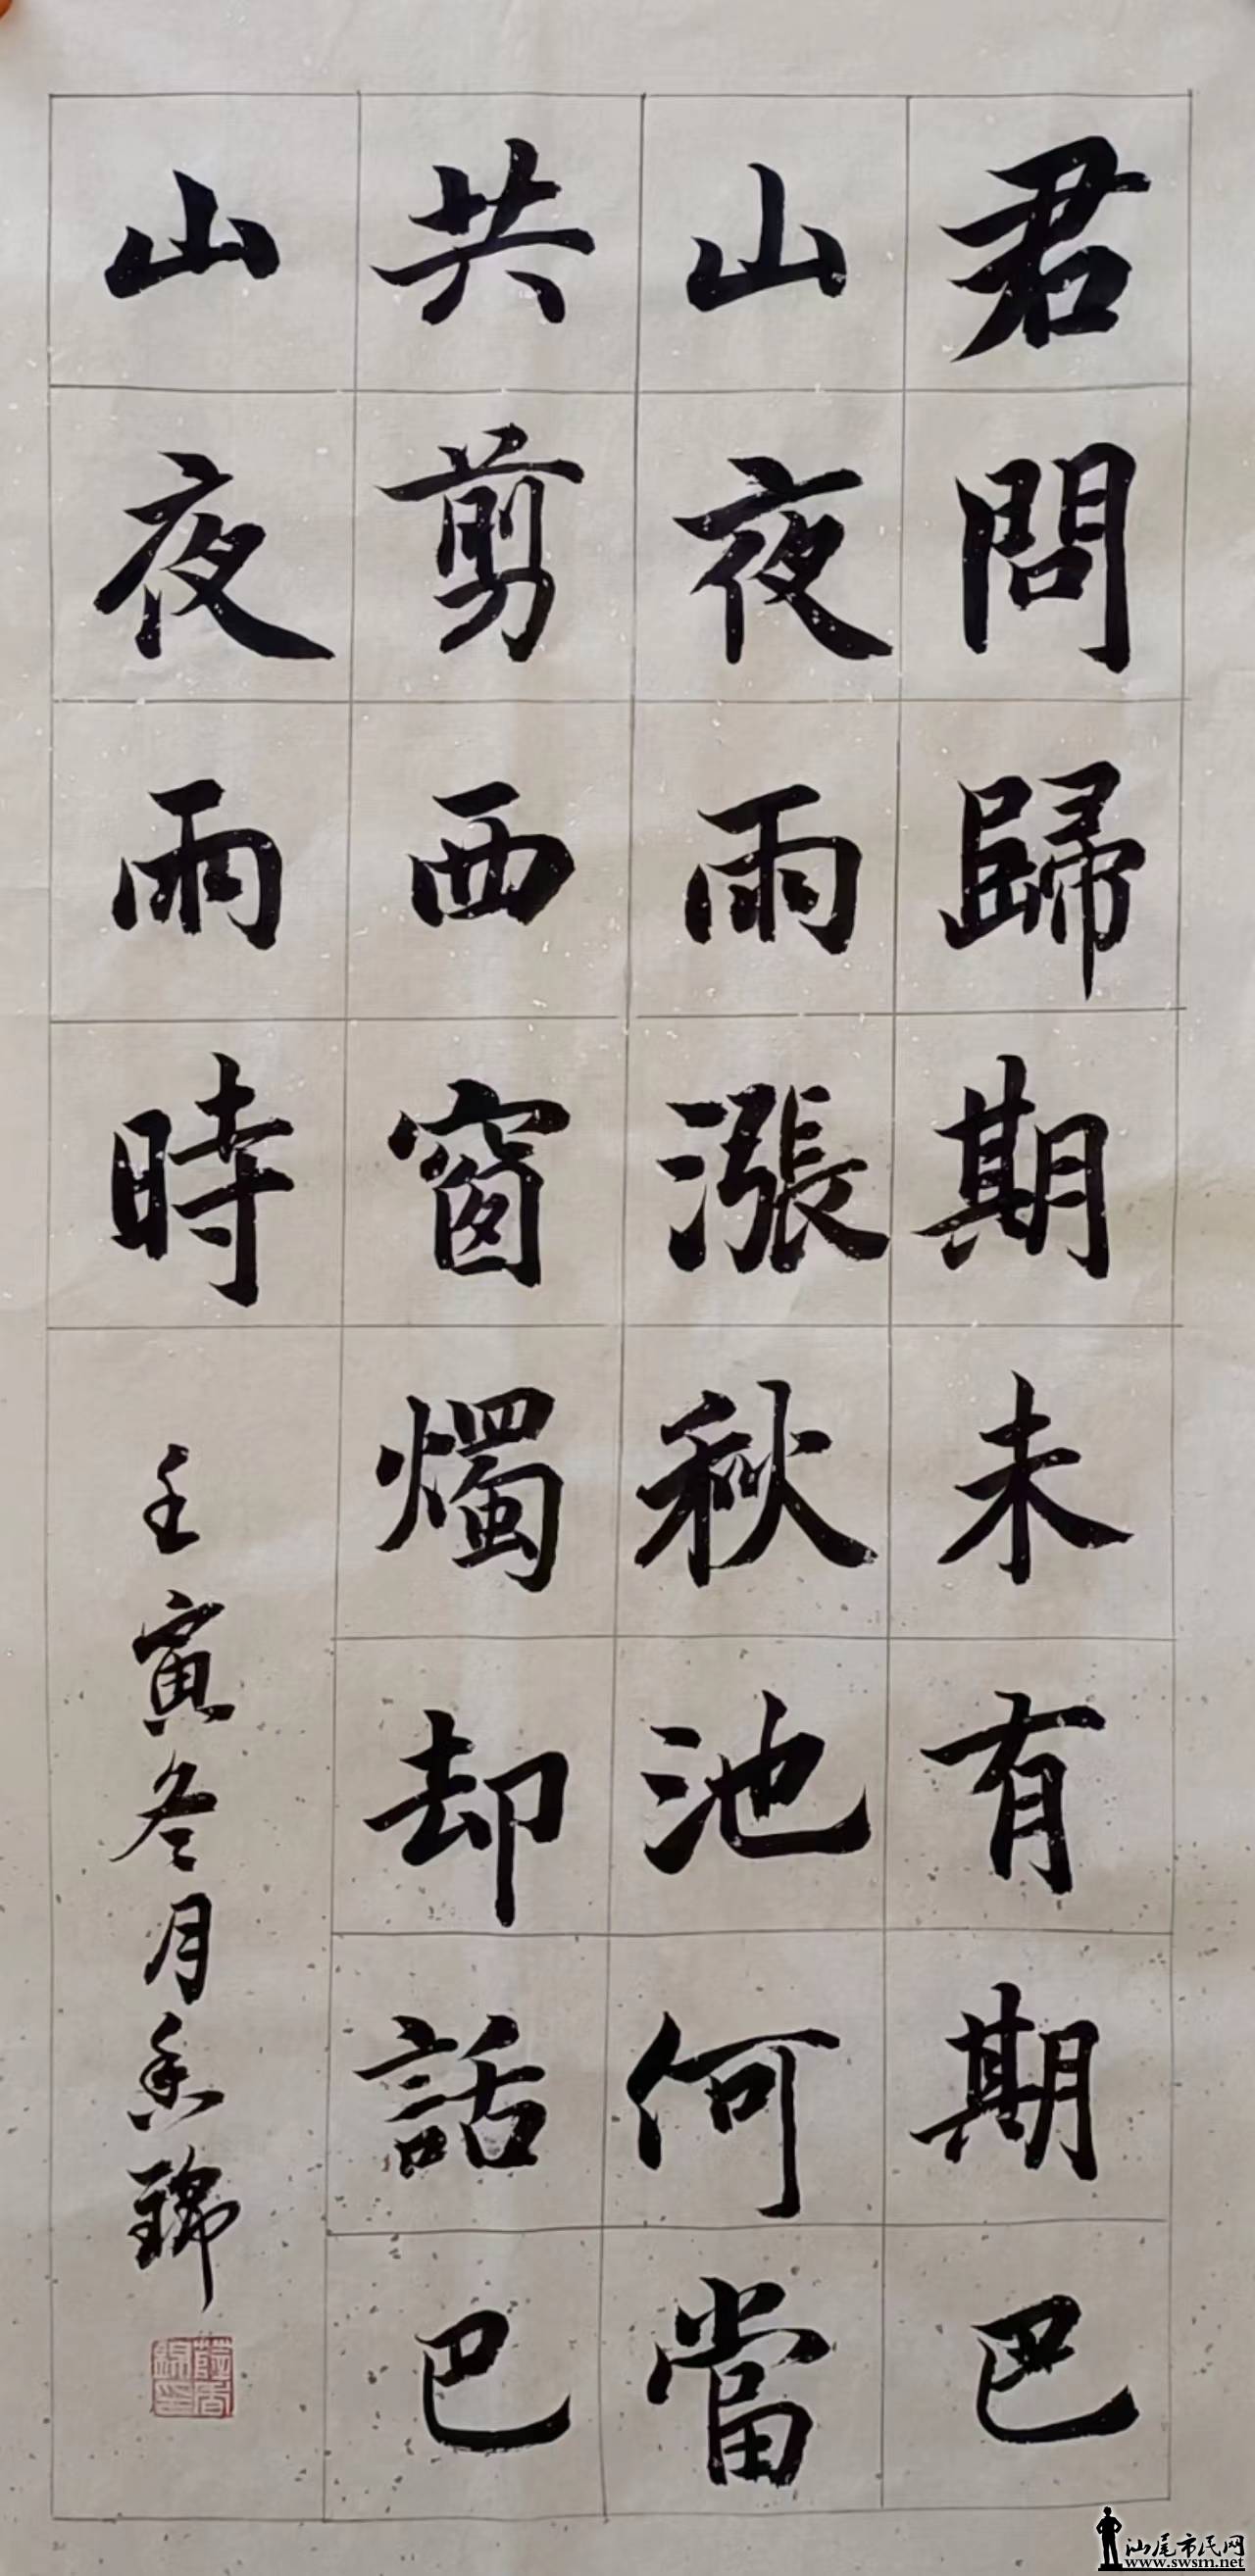 君問歸期未有期巴
山夜雨漲秋池何當
共剪西窗燭却話巴
山夜雨時
壬寅冬月香錦
汕尾市民网
www.swsm.net